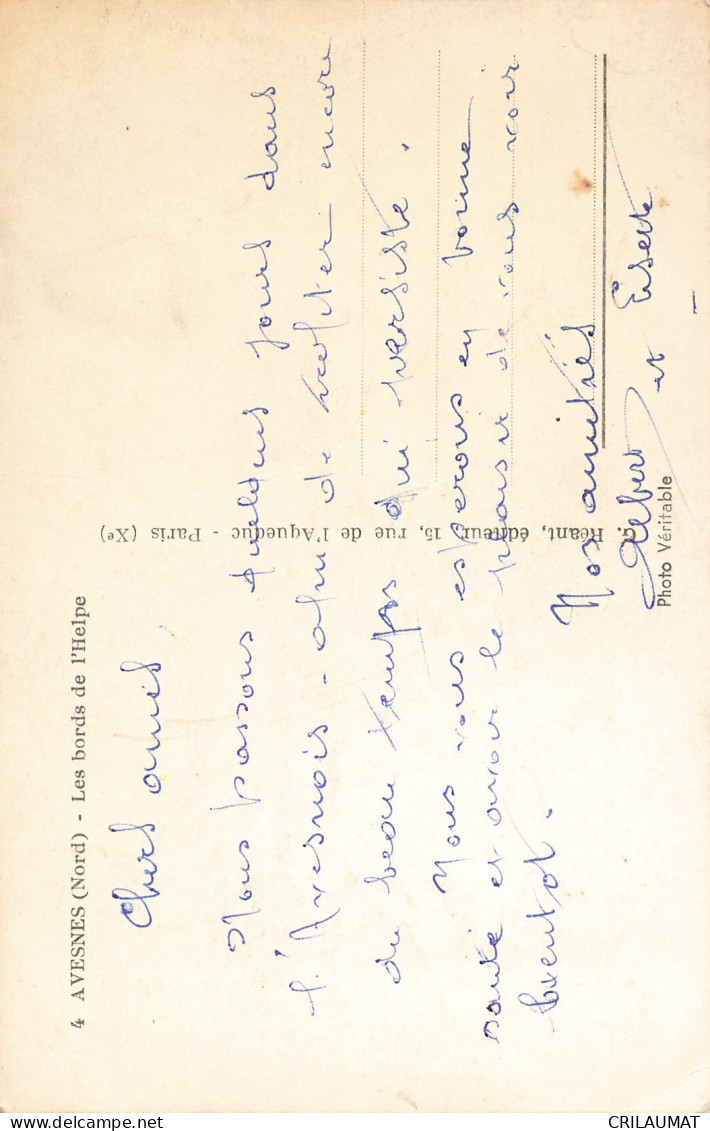 4 AVESNES (Nord) - Les bords de l'Helpe
Chers amis,
Nous passons quelques jours dans
l'Avesnois - afin de profiter encore
du beau temps qui persiste.
Nous vous espérons en bonne
santé et avoir le plaisir de vous voir
bientôt.
Nos amitiés
Albert et
G. Réant, éditeur, 15, rue de l'Aqueduc - Paris (Xe)
Photo Véritable
CRILAUMAT